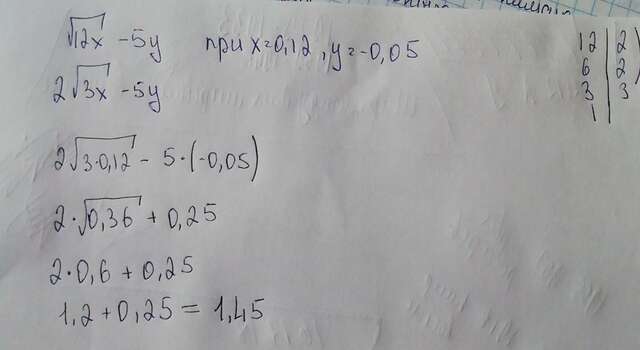 √12x - 5y при x=0,12, y=-0,05
2√3x - 5y
2√3·0,12 - 5·(-0,05)
2·√0,36 + 0,25
2·0,6 + 0,25
1,2 + 0,25 = 1,45
12 | 2
6 | 2
3 | 3
1 |